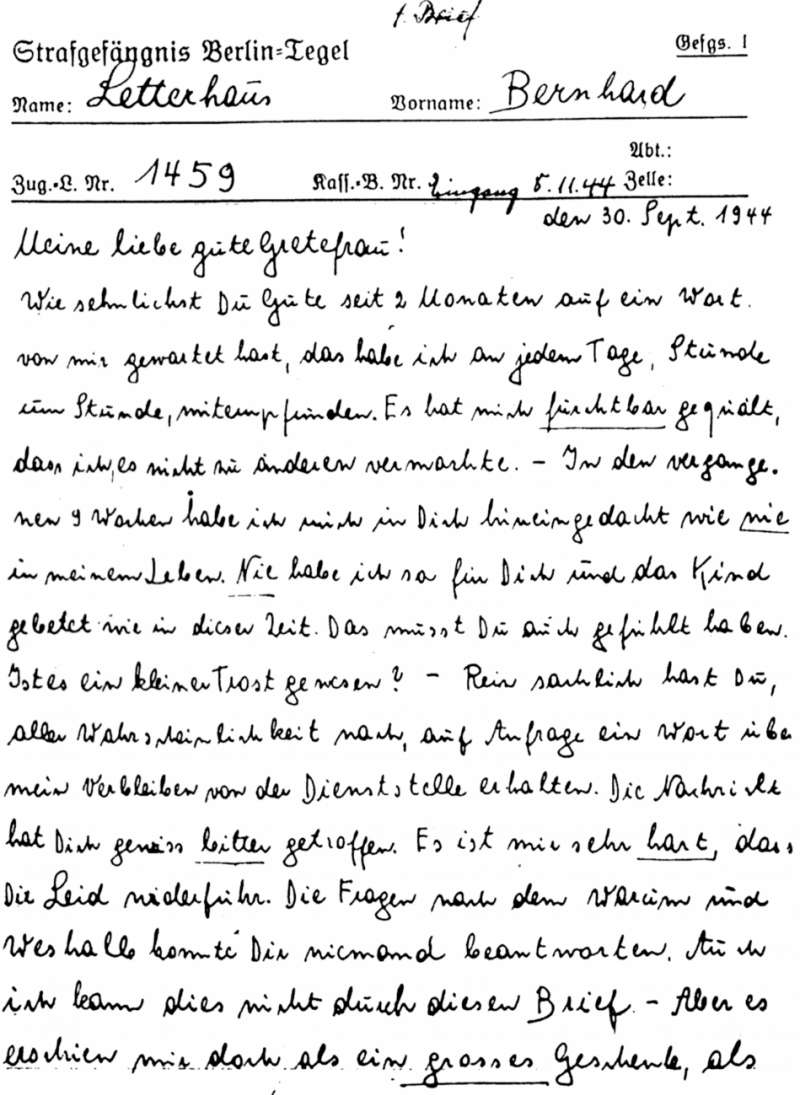 1. Brief
Strafgefängnis Berlin-Tegel
Gefgs. 1
Name: Letterhaus Vorname: Bernhard
Abt.:
Zug.-L. Nr. 1459 Kass.-B. Nr. Eingang 5.11.44 Zelle:
den 30. Sept. 1944
Meine liebe gute Gretefrau!
Wie sehnlichst Du Gute seit 2 Monaten auf ein Wort
von mir gewartet hast, das habe ich an jedem Tage, Stunde
um Stunde, mitempfunden. Es hat mich furchtbar gequält,
dass ich es nicht zu änderen vermochte. – In den vergange-
nen 9 Wochen habe ich mich in Dich hineingedacht wie nie
in meinem Leben. Nie habe ich so für Dich und das Kind
gebetet wie in dieser Zeit. Das musst Du auch gefühlt haben.
Ist es ein kleiner Trost gewesen? – Rein sachlich hast Du,
aller Wahrscheinlichkeit nach, auf Anfrage ein Wort über
mein Verbleiben von der Dienststelle erhalten. Die Nachricht
hat Dich gewiss bitter getroffen. Es ist mir sehr hart, dass
Dir Leid widerfuhr. Die Fragen nach dem Warum und
Weshalb konnte Dir niemand beantworten. Auch
ich kann dies nicht durch diesen Brief. – Aber es
erschien mir doch als ein grosses Geschenk, als